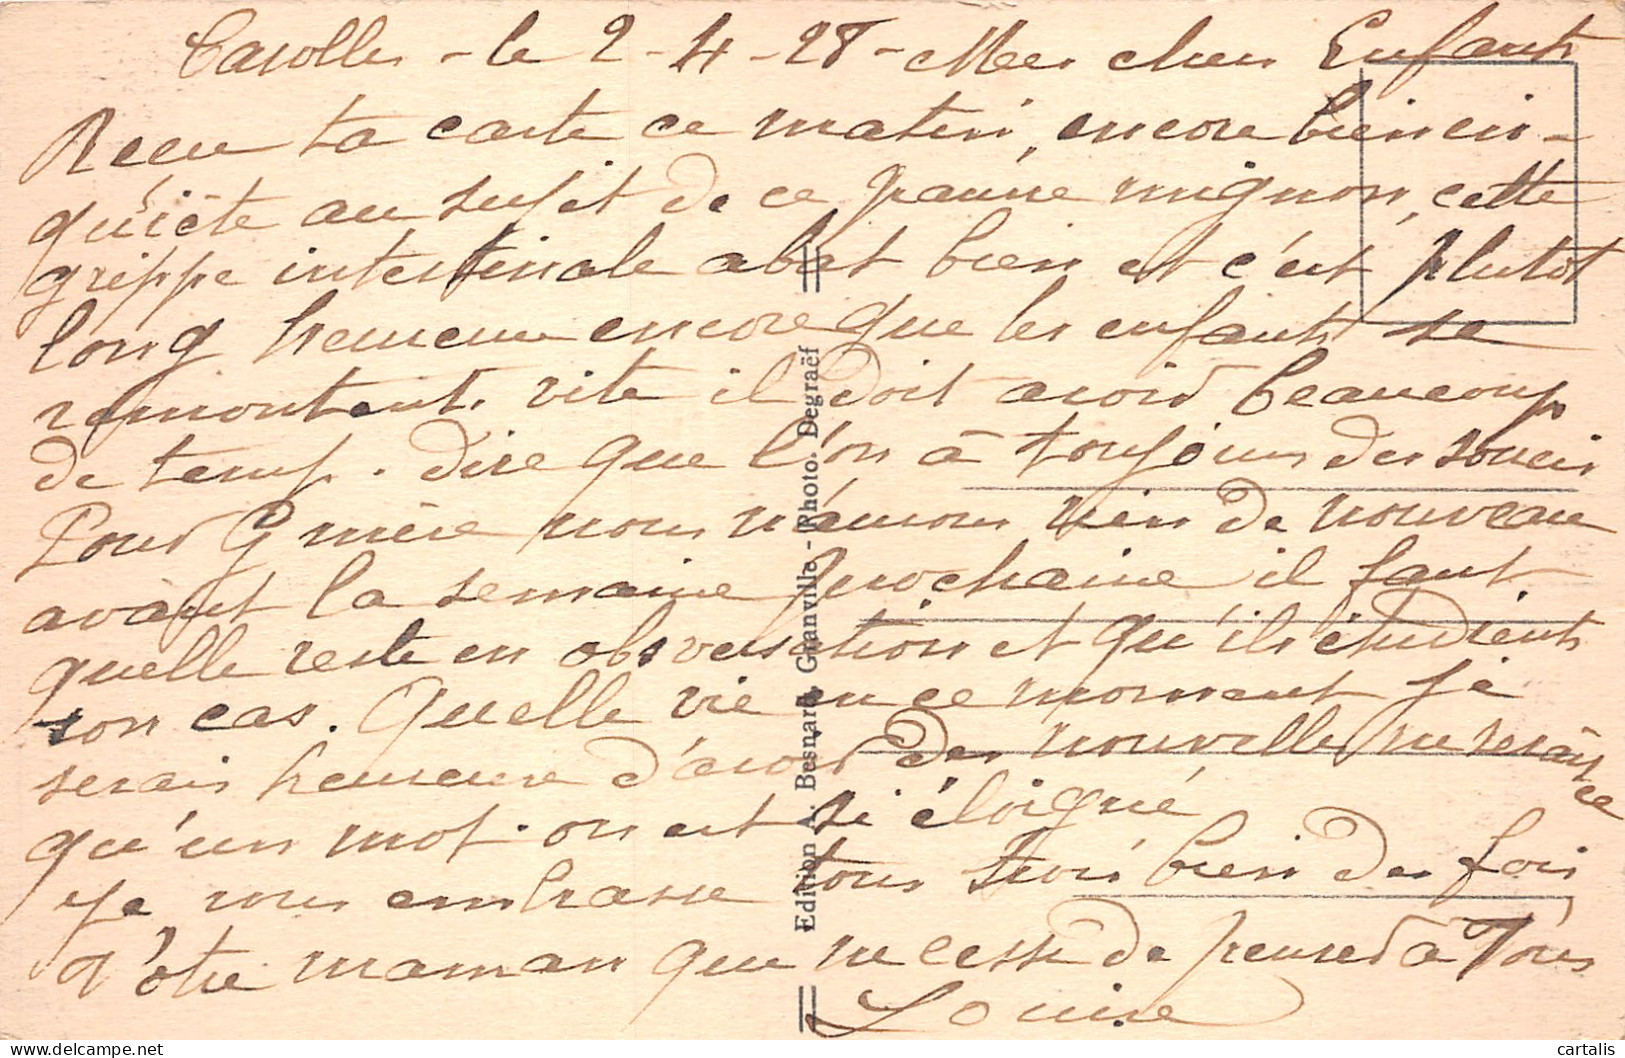 Carolles - le 2-4-28 - Mes chers Enfants
Recu ta carte ce matin, encore bien in-
quiète au sujet de ce pauvre mignon, cette
grippe intestinale abat bien et c'est plutot
long heureux encore que les enfants se
remontent vite il doit avoir beaucoup
de temp. dire que l'on à toujours des soucis
Pour G mère nous n'aurons rien de nouveau
avant la semaine prochaine il faut
quelle reste en observation et qu'ils étudient
son cas. Quelle vie en ce moment je
serais heureuse d'avoir des nouvelles ne serais ce
qu'un mot. on est si éloigné
Je vous embrasse tous trois bien des fois
Votre maman qui ne cesse de penser à Vous
Louise
Edition A. Besnard, Granville - Photo. Degraëf
cartalis